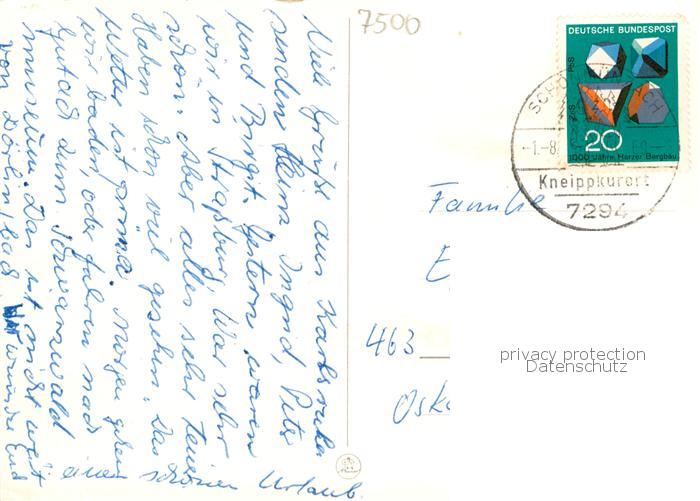 Viele Grüße aus Karlsruhe
senden Heinz Ingrid, Peter
und Birgit. Gestern waren
wir in Straßburg. War sehr
schön. Aber alles sehr teuer.
Haben schon viel gesehen. Das
Wetter ist prima. Morgen gehen
wir baden, oder fahren nach
Gutach zum Schwarzwald
museum. Das ist nicht weit
von Dörlinbach wünsche Euch
einen schönen Urlaub.
7500
DEUTSCHE BUNDESPOST
20
1000 Jahre Harzer Bergbau
-1.-8.
Kneippkurort
7294
Familie
E
463
privacy protection
Datenschutz